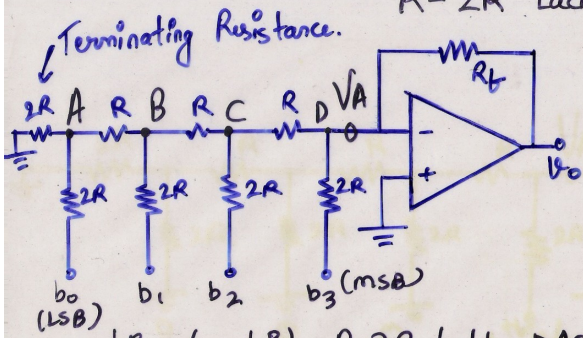 R-2R Lad
Terminating Resistance.
2R A R B R C R D VA Rf
- +
Vo
2R 2R 2R 2R
b0 b1 b2 b3 (MSB)
(LSB)